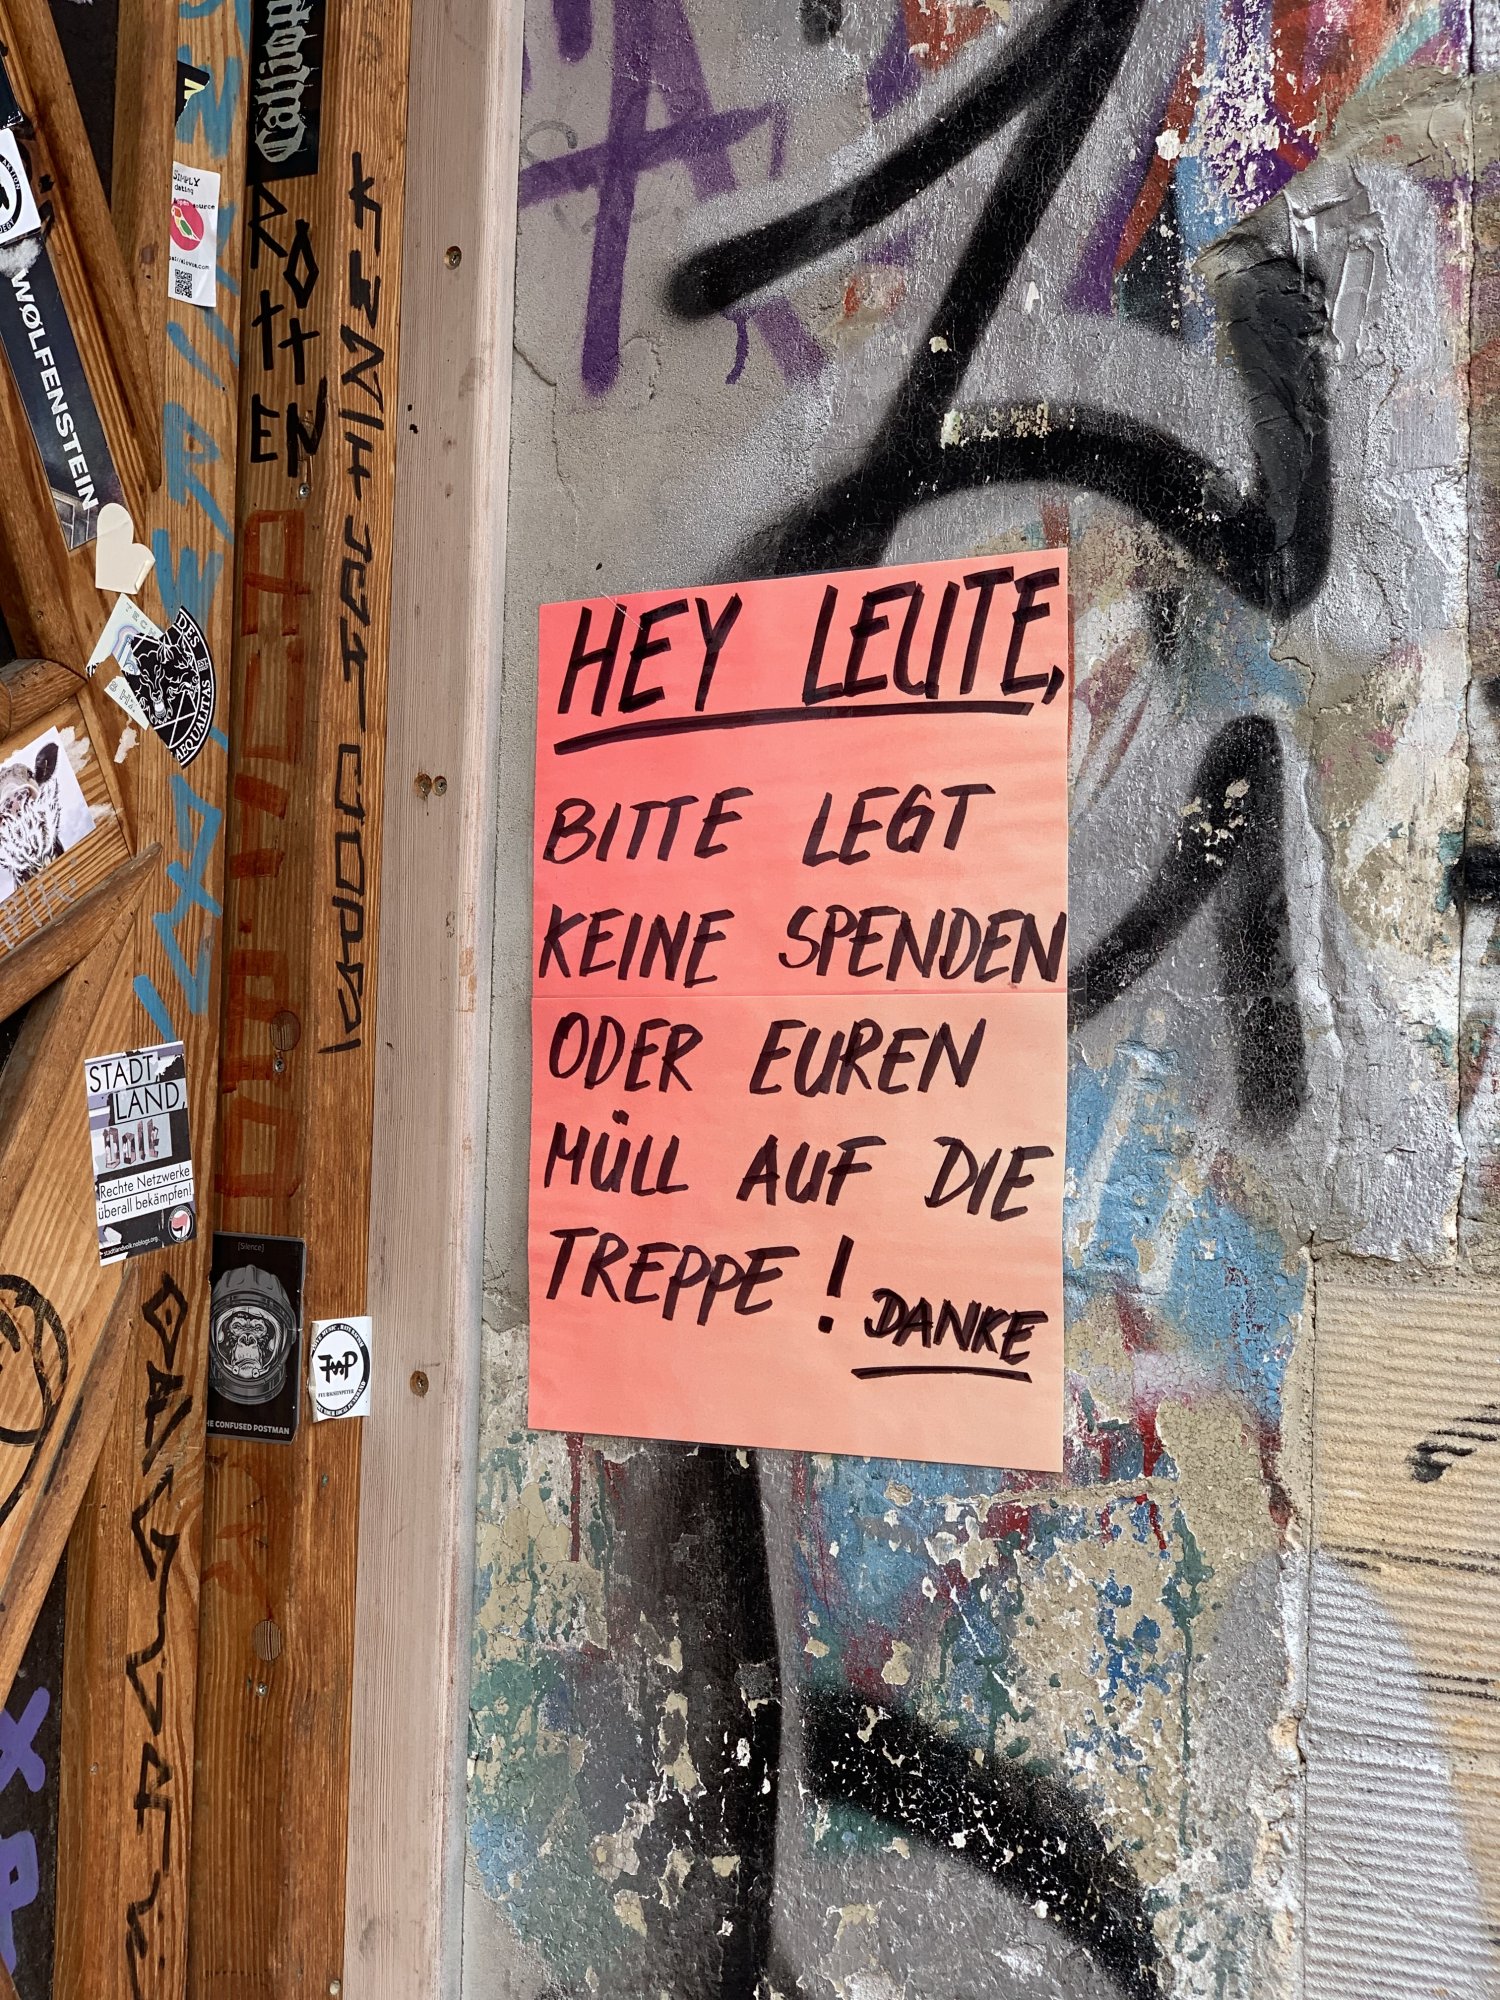 Calliop
SIMPLY
dating
open source
ROTTEN
WØLFENSTEIN
DES
AEQUALITAS
HEY LEUTE,
BITTE LEGT
KEINE SPENDEN
ODER EUREN
MÜLL AUF DIE
TREPPE! DANKE
STADT,
LAND,
Rechte Netzwerke
überall bekämpfen!
[Silence]
HE CONFUSED POSTMAN